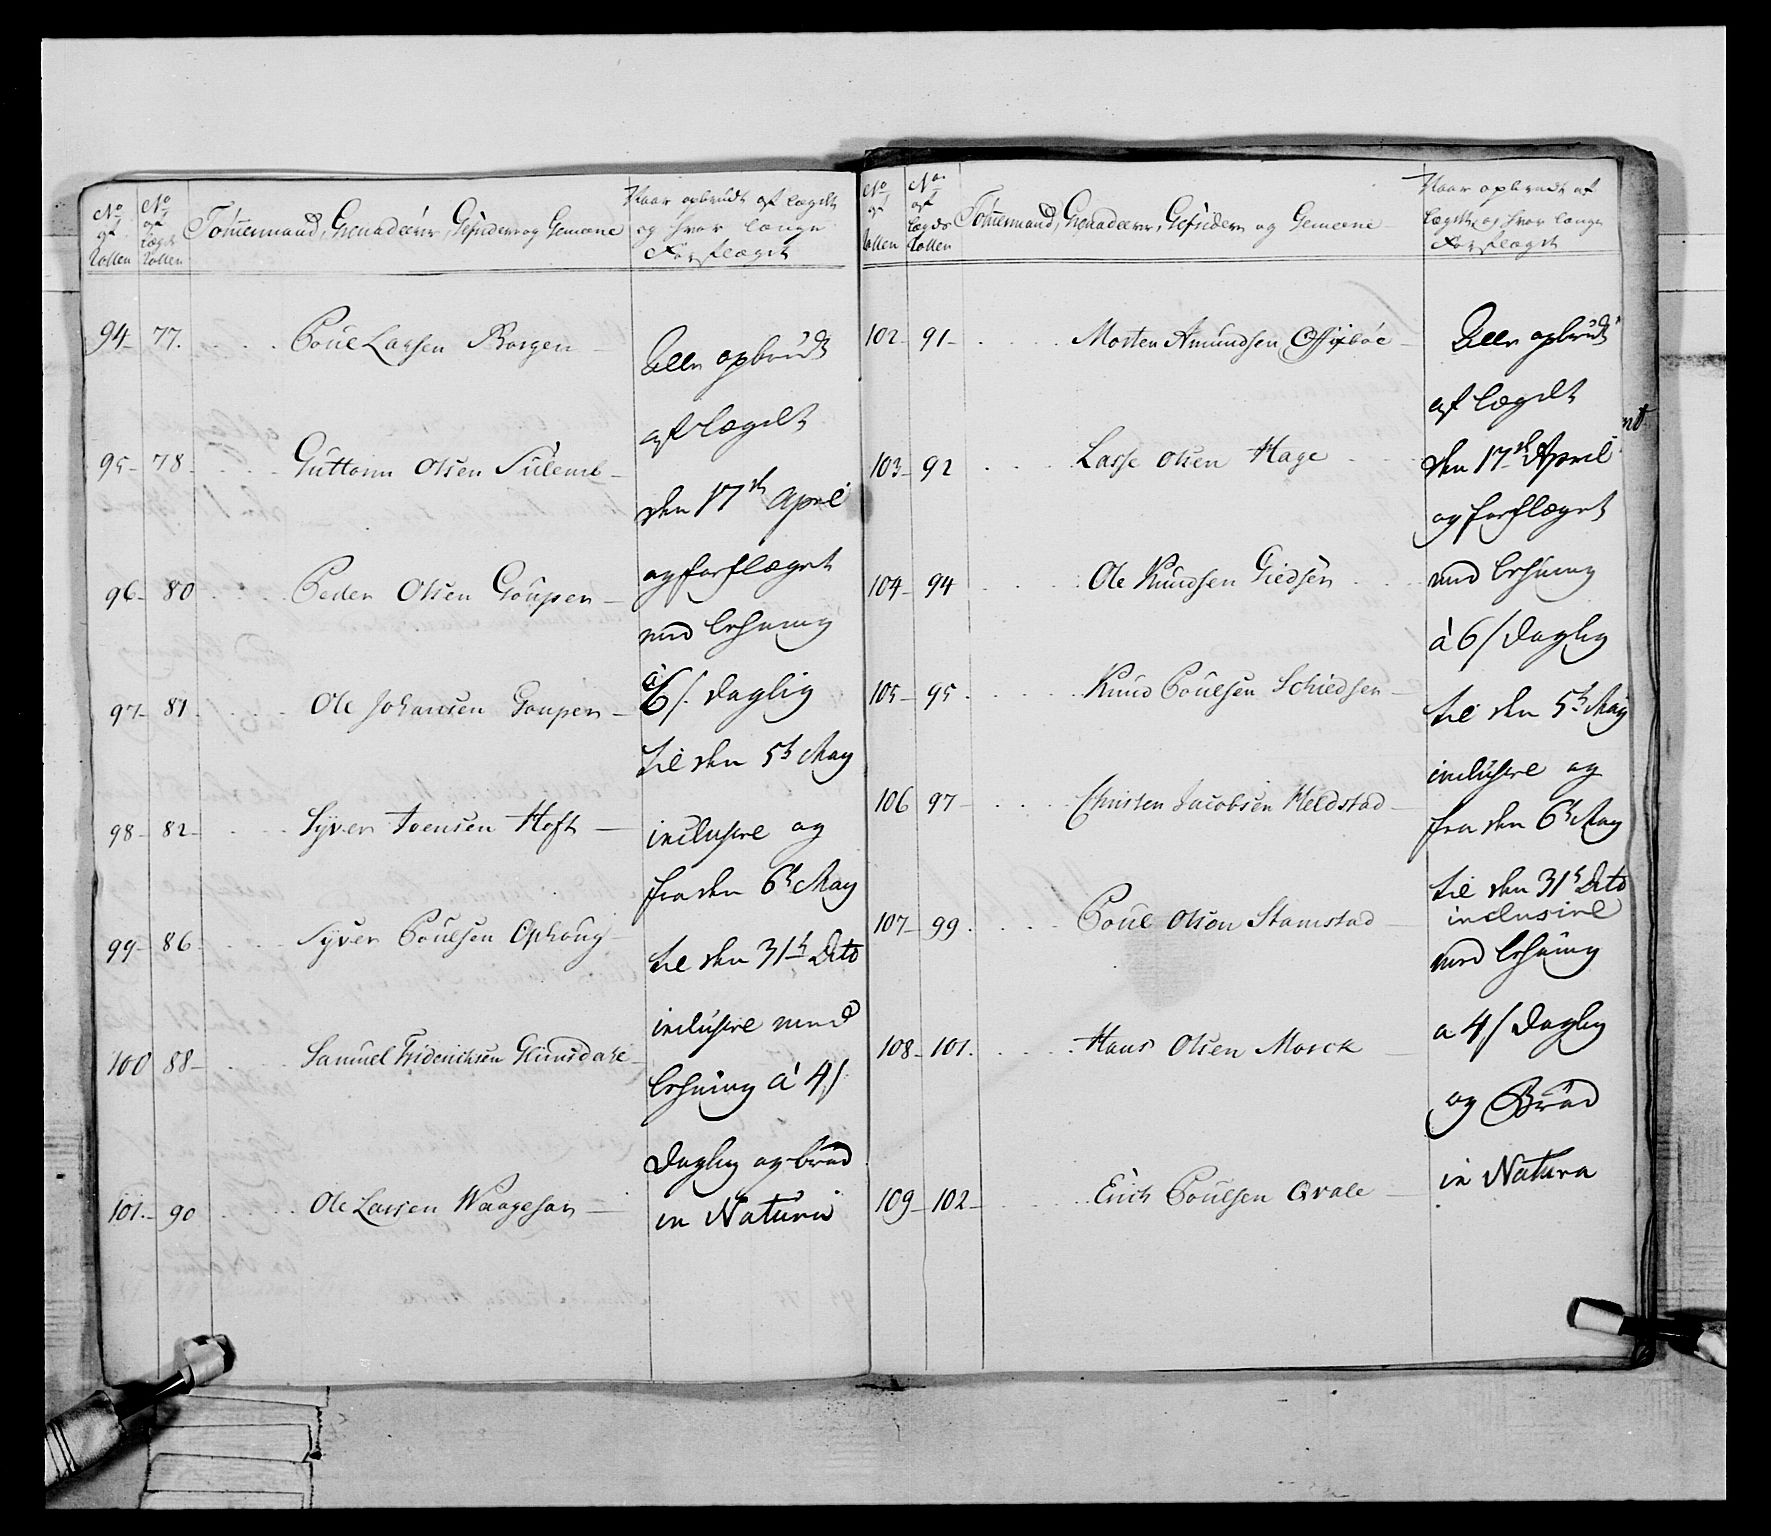 No af Rollen
No af Lægds Rollen
Tømmermænd, Grenadeerer, Gefrider og Gemeene
Naar opbrudt af Lægdet
og hvor længe
Forflæget
94 77 Poul Larsen Borgen
95 78 Guttorm Olsen
96 80 Peder Olsen Goupen
97 81 Ole Johansen Goupen
98 82 Syver Joensen Hoft
99 86 Syver Poulsen Ophoug
100 88 Samuel Friderichsen Glimsdahl
101 90 Ole Larsen Waagesan
Alle opbrudt
af Lægdet
den 17de April
og forflæget
med Lehning
à 6/ daglig
til den 5te May
inclusive og
fra den 6te May
til den 31te Dito
inclusive med
Lehning à 4/
Daglig og brød
in Natura
No af Rollen
No af Lægds Rollen
Tømmermænd, Grenadeerer, Gefrider og Gemeene
Naar opbrudt af
Lægdet, og hvor længe
Forflæget
102 91 Morten Amundsen
103 92 Lasse Olsen Hage
104 94 Ole Knudsen Giedsen
105 95 Knud Poulsen Schiedsen
106 97 Christen Jacobsen Heldstad
107 99 Poul Olson Stamstad
108 101 Hans Olsen Morck
109 102 Erich Poulsen Qvale
Alle opbrudt
af Lægdet
den 17de April
og forflæget
med Lehning
à 6/ Daglig
til den 5te May
inclusive og
fra den 6te May
til den 31te Dito
inclusive
med Lehning
a 4/ Daglig
og Brød
in Natura